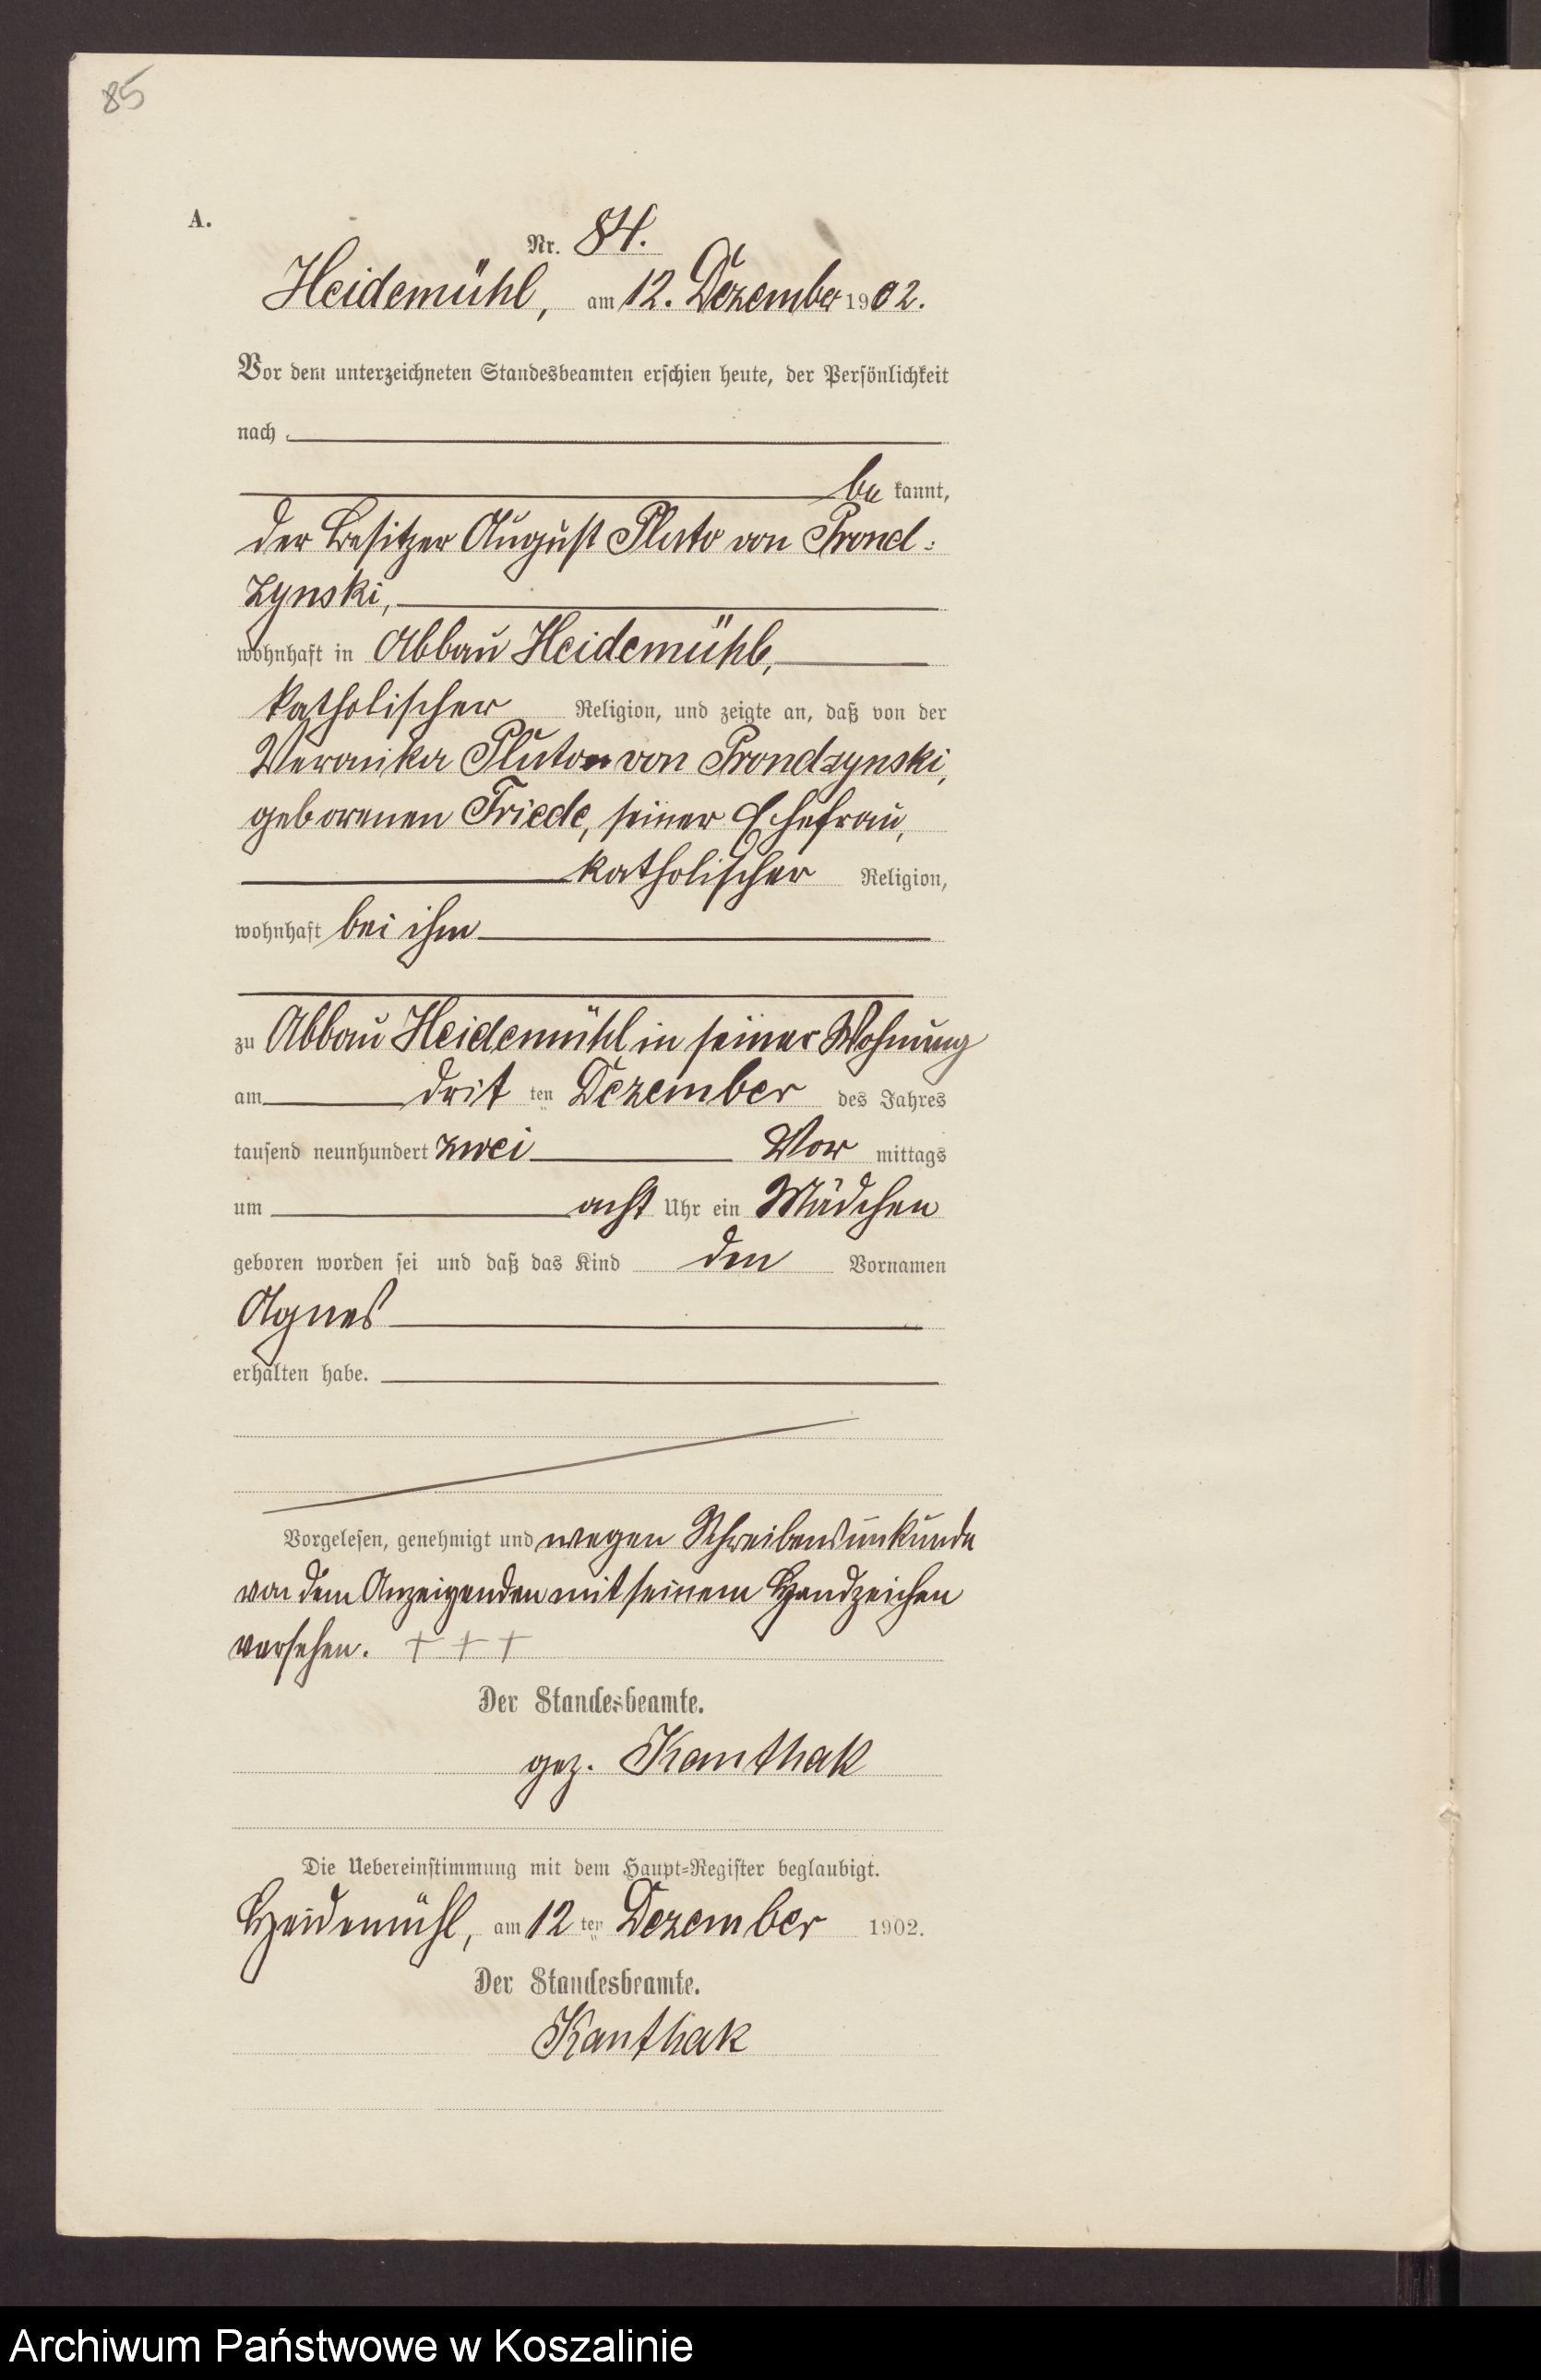 85
A.
Nr. 84.
Heidemühl, am 12. Dezember 1902.
Vor dem unterzeichneten Standesbeamten erschien heute, der Persönlichkeit
nach
be kannt,
der Besitzer August Pluto von Prond=
zynski,
wohnhaft in Abbau Heidemühl,
katholischer Religion, und zeigte an, daß von der
Veronika Pluto von Prondzynski,
geborenen Friede, seiner Ehefrau,
katholischer Religion,
wohnhaft bei ihm
zu Abbau Heidemühl in seiner Wohnung
am drit ten Dezember des Jahres
tausend neunhundert zwei Vor mittags
um acht Uhr ein Mädchen
geboren worden sei und daß das Kind den Vornamen
Agnes
erhalten habe.
Vorgelesen, genehmigt und wegen Schreibensunkunde
von dem Anzeigenden mit seinem Handzeichen
versehen. + + +
Der Standesbeamte.
gez. Kanthak
Die Uebereinstimmung mit dem Haupt=Register beglaubigt.
Heidemühl, am 12 ten Dezember 1902.
Der Standesbeamte.
Kanthak
Archiwum Państwowe w Koszalinie